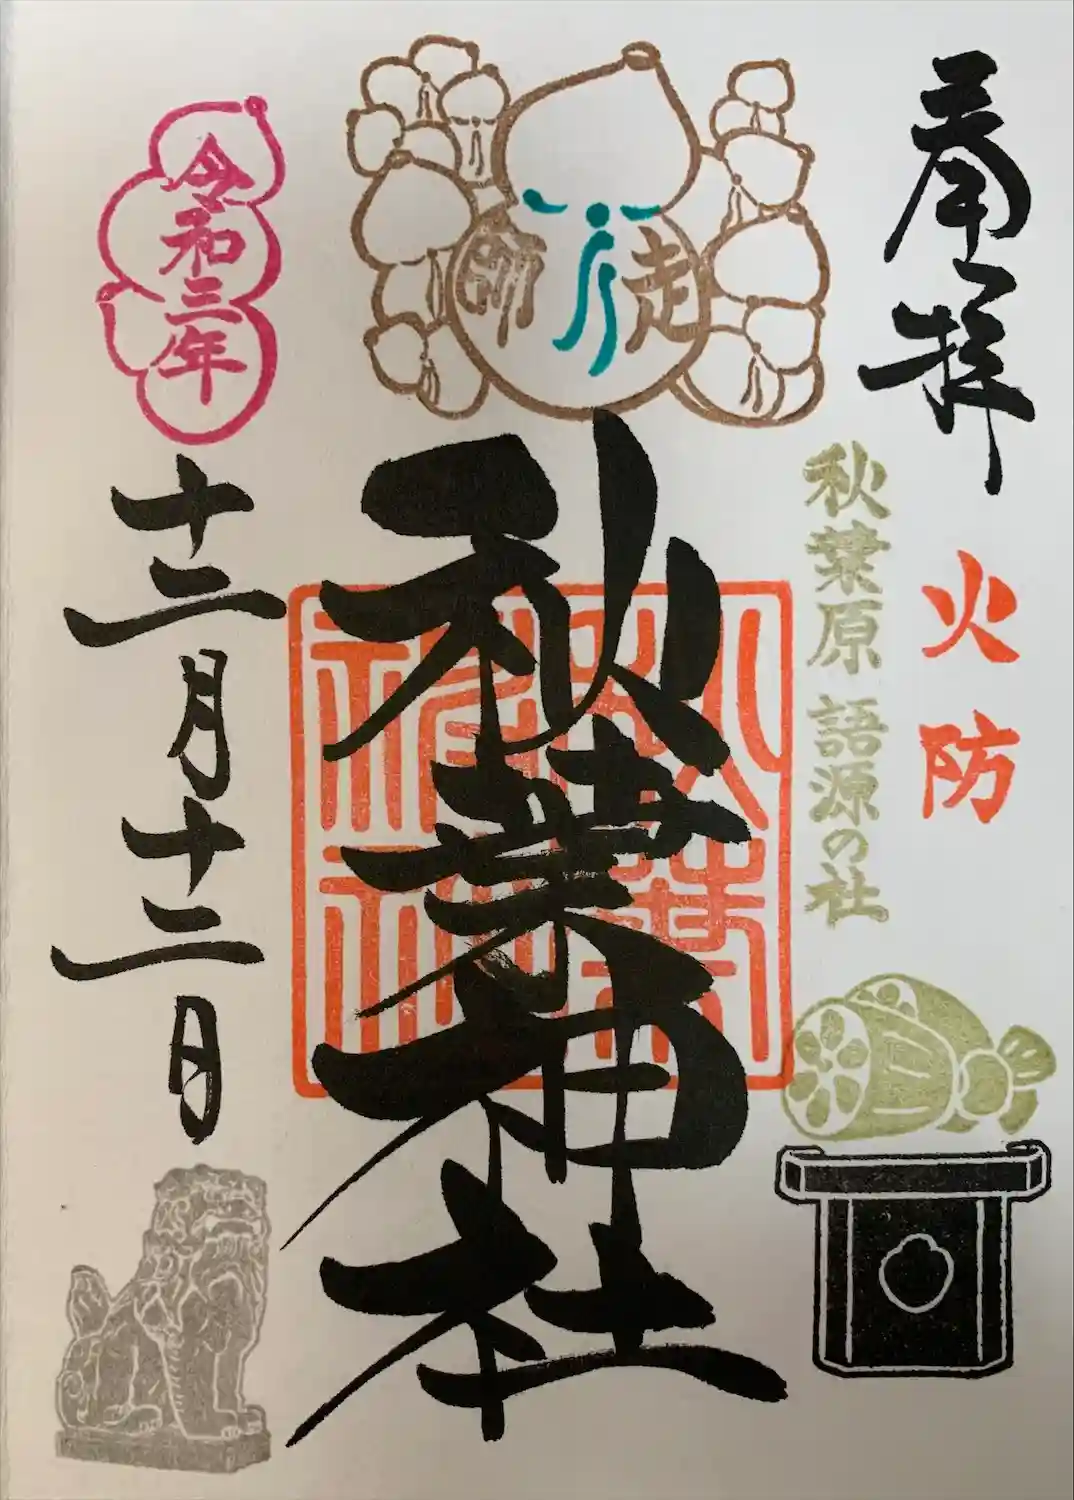 奉拝
火防
秋葉原 語源の社
師走
秋葉神社
令和三年
十二月十二日